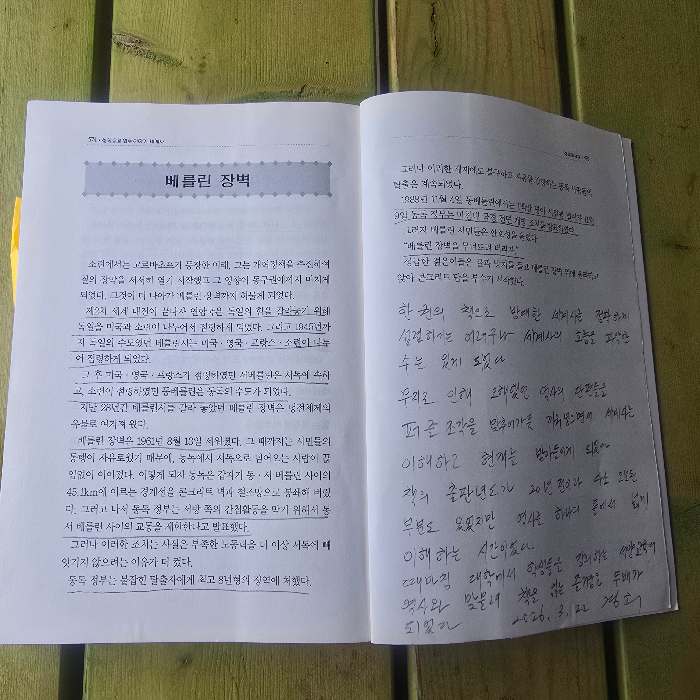 베를린 장벽
소련에서는 고르바초프가 등장한 이래, 그는 개혁정책을 추진하여
철의 장막을 서서히 열기 시작했고 그 영향이 동구권에까지 미치게
되었다. 그것이 더 나아가 베를린 장벽까지 허물게 되었다.
제2차 세계 대전이 끝나자 연합국은 독일의 힘을 갈라놓기 위해
독일을 미국과 소련이 나누어서 점령하게 되었다. 그리고 1945년까
지 독일의 수도였던 베를린시는 미국·영국·프랑스·소련이 나누
어 점령하게 되었다.
그 후 미국·영국·프랑스가 점령하였던 서베를린은 서독에 속하
고, 소련이 점령하였던 동베를린은 동독의 수도가 되었다.
지난 28년간 베를린시를 갈라 놓았던 베를린 장벽은 냉전체제의
유물로 여겨져 왔다.
베를린 장벽은 1961년 8월 13일 세워졌다. 그 때까지는 시민들의
통행이 자유로웠기 때문에, 동독에서 서독으로 넘어오는 사람이 끊
임없이 이어졌다. 이렇게 되자 동독은 갑자기 동·서 베를린 사이의
45.1km에 이르는 경계선을 콘크리트 벽과 철조망으로 봉쇄해 버렸
다. 그러고 나서 동독 정부는 서방 쪽의 간첩활동을 막기 위해서 동
서 베를린 사이의 교통을 제한한다고 발표했다.
그러나 이러한 조치는 사실은 부족한 노동력을 더 이상 서독에 빼
앗기지 않으려는 이유가 더 컸다.
동독 정부는 붙잡힌 탈출자에게 최고 8년형의 징역에 처했다.
그러나 이러한 제재에도 불구하고 자유를 갈망하는 동독 시민들의
탈출은 계속되었다.
1989년 11월 4일 동베를린에서는 1백만 명이
9일, 동독 정부는 마침내 국경 전면 개방 조치를
그러자 베를린 시민들은 환호성을 올렸다.
"베를린 장벽을 무너뜨려 버리자."
성급한 젊은이들은 끌과 망치를 들고 베를린 장벽 위에 올라타고
앉아 콘크리트 판을 부수기 시작했다.
한 권의 책으로 방대한 세계사를
섭렵하기는 어려우나 세계사의 흐름을 파악할
수는 있게 되었다
무지로 인해 오해했던 역사의 단편들을
퍼즐 조각을 맞추어가듯 끼워넣으면서 세계사를
이해하고 현재를 받아들이게 되었다
책의 출판년도가 20년 전이라 다소
부분도 있었지만 역사를 하나의 틀에서 쉽게
이해하는 시간이었다.
때마침 대학에서 학생들을 강의하는
역사와 맞물려 책을 읽는 즐거움 두배가
되었다 2026. 3. 22